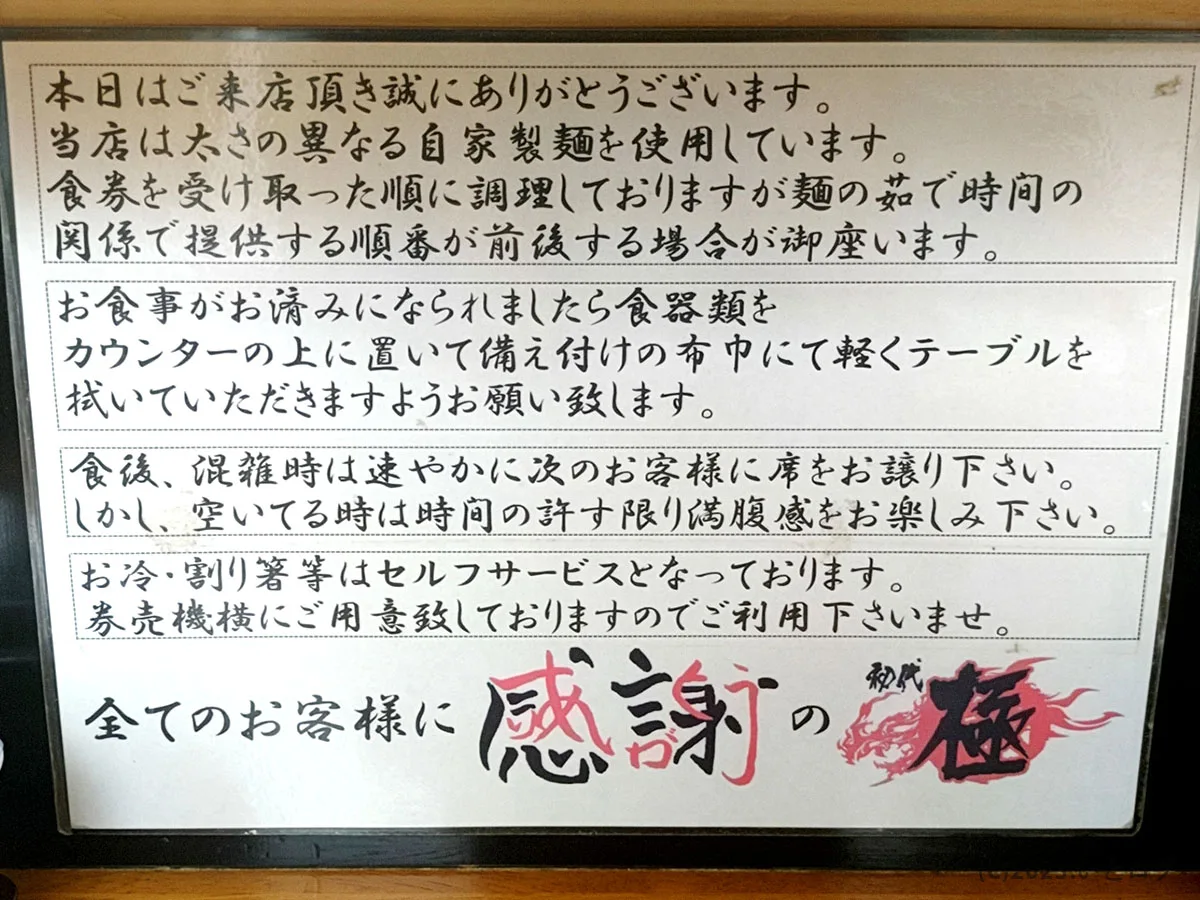 本日はご来店頂き誠にありがとうございます。
当店は太さの異なる自家製麺を使用しています。
食券を受け取った順に調理しておりますが麺の茹で時間の
関係で提供する順番が前後する場合が御座います。
お食事がお済みになられましたら食器類を
カウンターの上に置いて備え付けの布巾にて軽くテーブルを
拭いていただきますようお願い致します。
食後、混雑時は速やかに次のお客様に席をお譲り下さい。
しかし、空いてる時は時間の許す限り満腹感をお楽しみ下さい。
お冷・割り箸等はセルフサービスとなっております。
券売機横にご用意致しておりますのでご利用下さいませ。
全てのお客様に感謝の初代極